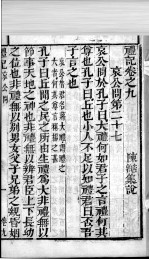 禮記卷之九
陳澔集說
哀公問第二十七
哀公問於孔子曰大禮何如君子之言禮何其
尊也孔子曰丘也小人不足以知禮君曰否吾
子言之也
孔子曰丘聞之民之所由生禮為大非禮無以
節事天地之神也非禮無以辨君臣上下長幼
之位也非禮無以別男女父子兄弟之親昏姻